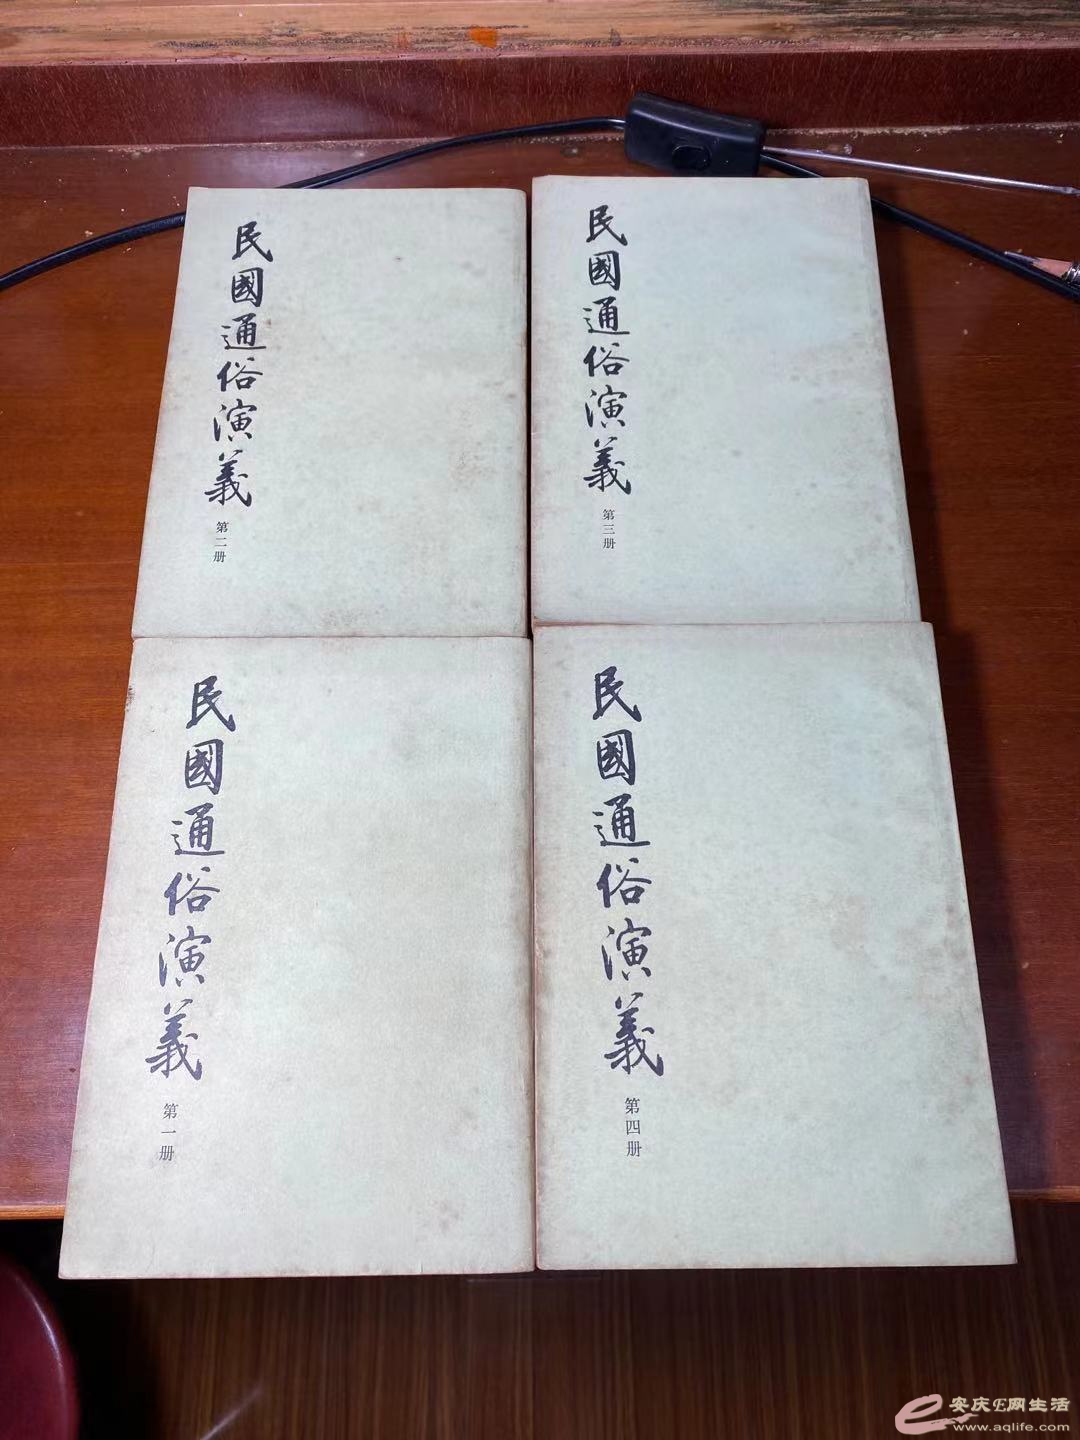 民國通俗演義
第二册
民國通俗演義
第三册
民國通俗演義
第一册
民國通俗演義
第四册
安庆E网生活
www.aqlife.com